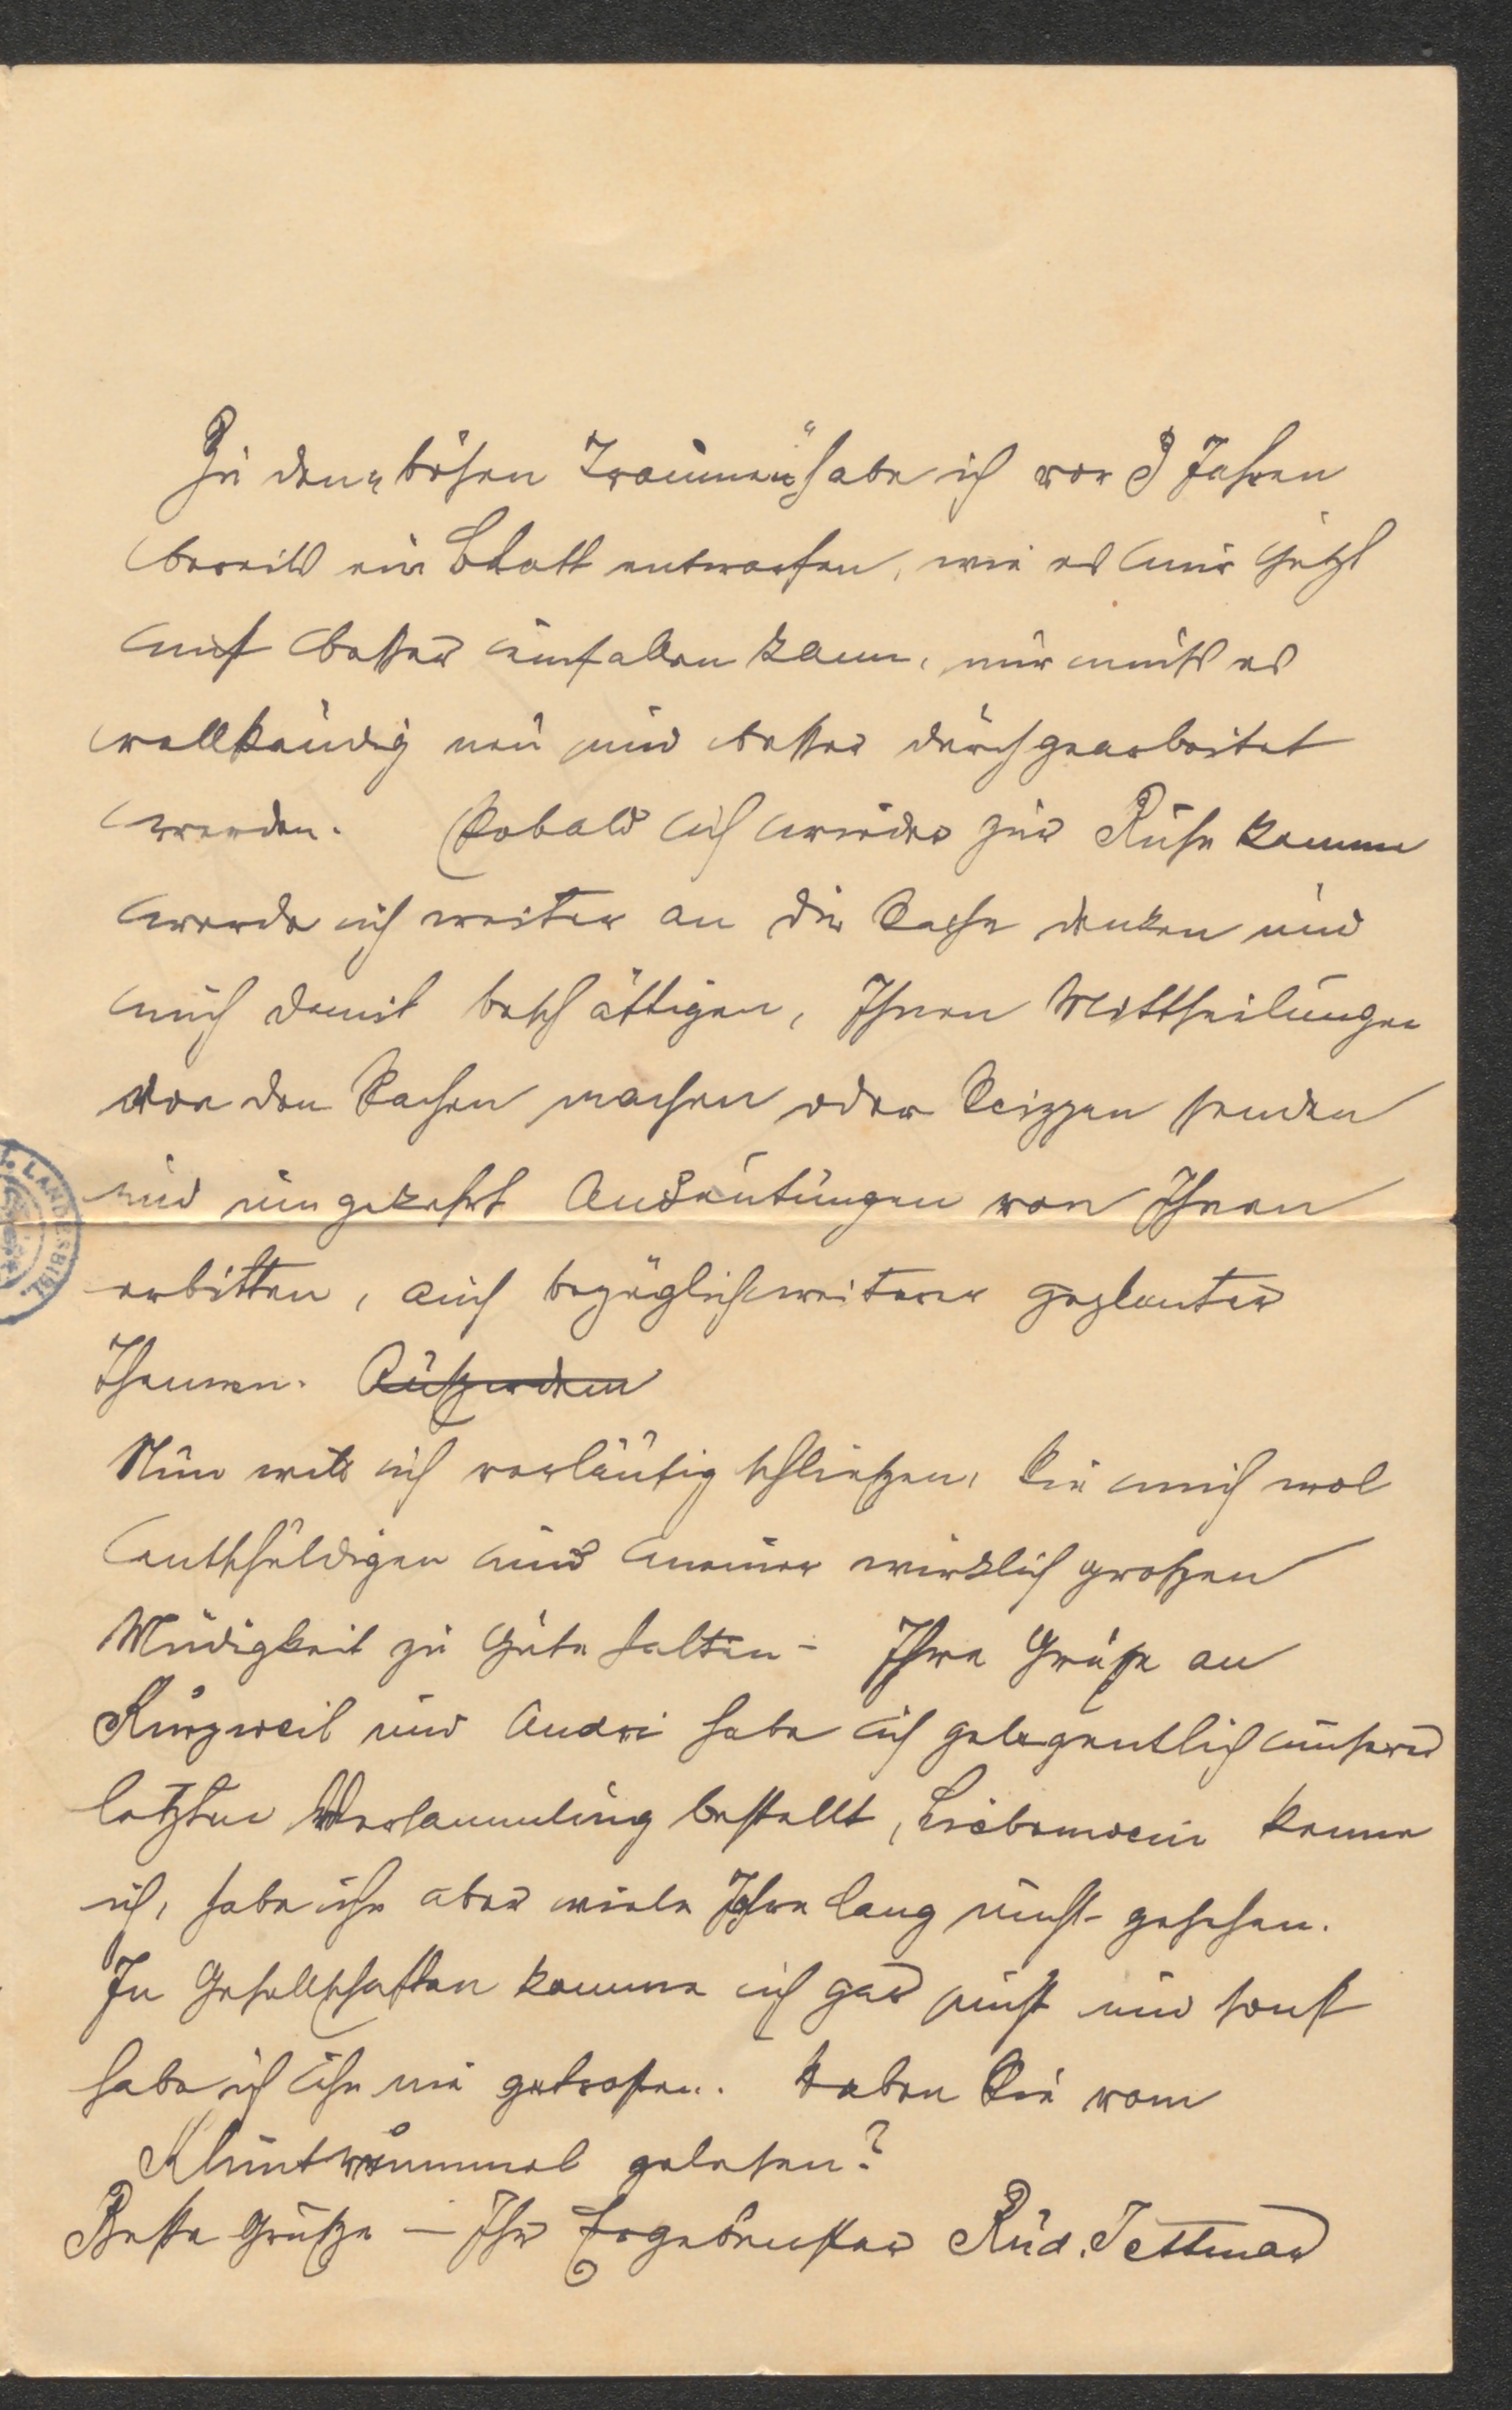 Zu den „bösen Träumen“ habe ich vor 3 Jahren
bereits ein Blatt entworfen, wie es mir jetzt
nicht besser einfallen kann, nur muß es
vollständig neu und besser durchgearbeitet
werden. Sobald ich wieder zur Ruhe komme
werde ich weiter an die Sache denken und
mich damit beschäftigen, Ihnen Mittheilungen
von den Sachen machen oder Scizzen senden
und umgekehrt Andeutungen von Ihnen
erbitten, auch bezüglich weiterer geplanter
Themen. Außerdem
Nun will ich vorläufig schließen, Sie mich wol
entschuldigen und meiner wirklich großen
Müdigkeit zu Gute halten – Ihre Grüße an
Kurzweil und Andri habe ich gelegentlich unserer
letzten Versammlung bestellt, Liebenwein kenne
ich, habe ihn aber viele Jahre lang nicht gesehen.
In Gesellschaften komme ich gar nicht und sonst
habe ich ihn nie getroffen. Haben Sie vom
gelesen?
Beste Grüße – Ihr Ergebenster Rud. Jettmar
LANDESBIBL.